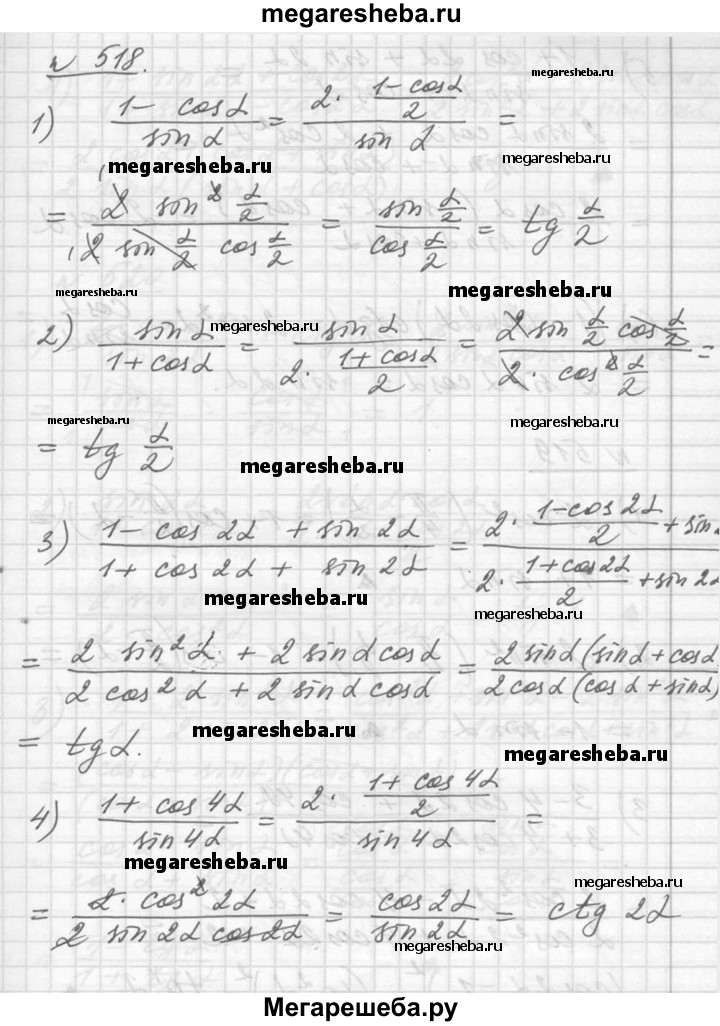 megaresheba.ru
n 518.
1) (1 - cosα)/(sin α) = (2 · (1-cosα)/2)/(sin α) =
megaresheba.ru
megaresheba.ru
= (2 sin² α/2)/(2 sin α/2 cos α/2) = (sin α/2)/(cos α/2) = tg α/2
megaresheba.ru
megaresheba.ru
2) (sinα)/(1+cosα) = (sin α)/(2 · (1+cosα)/2) = (2 sin α/2 cos α/2)/(2 · cos² α/2) =
megaresheba.ru
megaresheba.ru
megaresheba.ru
= tg α/2
megaresheba.ru
3) (1 - cos 2α + sin 2α)/(1 + cos 2α + sin 2α) = (2 · (1-cos 2α)/2 + sin)/(2 · (1+cos2α)/2 + sin 2α)
megaresheba.ru
megaresheba.ru
= (2 sin² α + 2 sin α cos α)/(2 cos² α + 2 sin α cos α) = (2 sinα (sinα + cosα)/(2 cosα (cos α + sinα)
megaresheba.ru
= tg α.
megaresheba.ru
4) (1 + cos 4α)/(sin 4α) = (2 · (1 + cos 4α)/2)/(sin 4α) =
megaresheba.ru
megaresheba.ru
= (2 · cos² 2α)/(2 sin 2α cos 2α) = (cos 2α)/(sin 2α) = ctg 2α
megaresheba.ru
Мегарешеба.ру